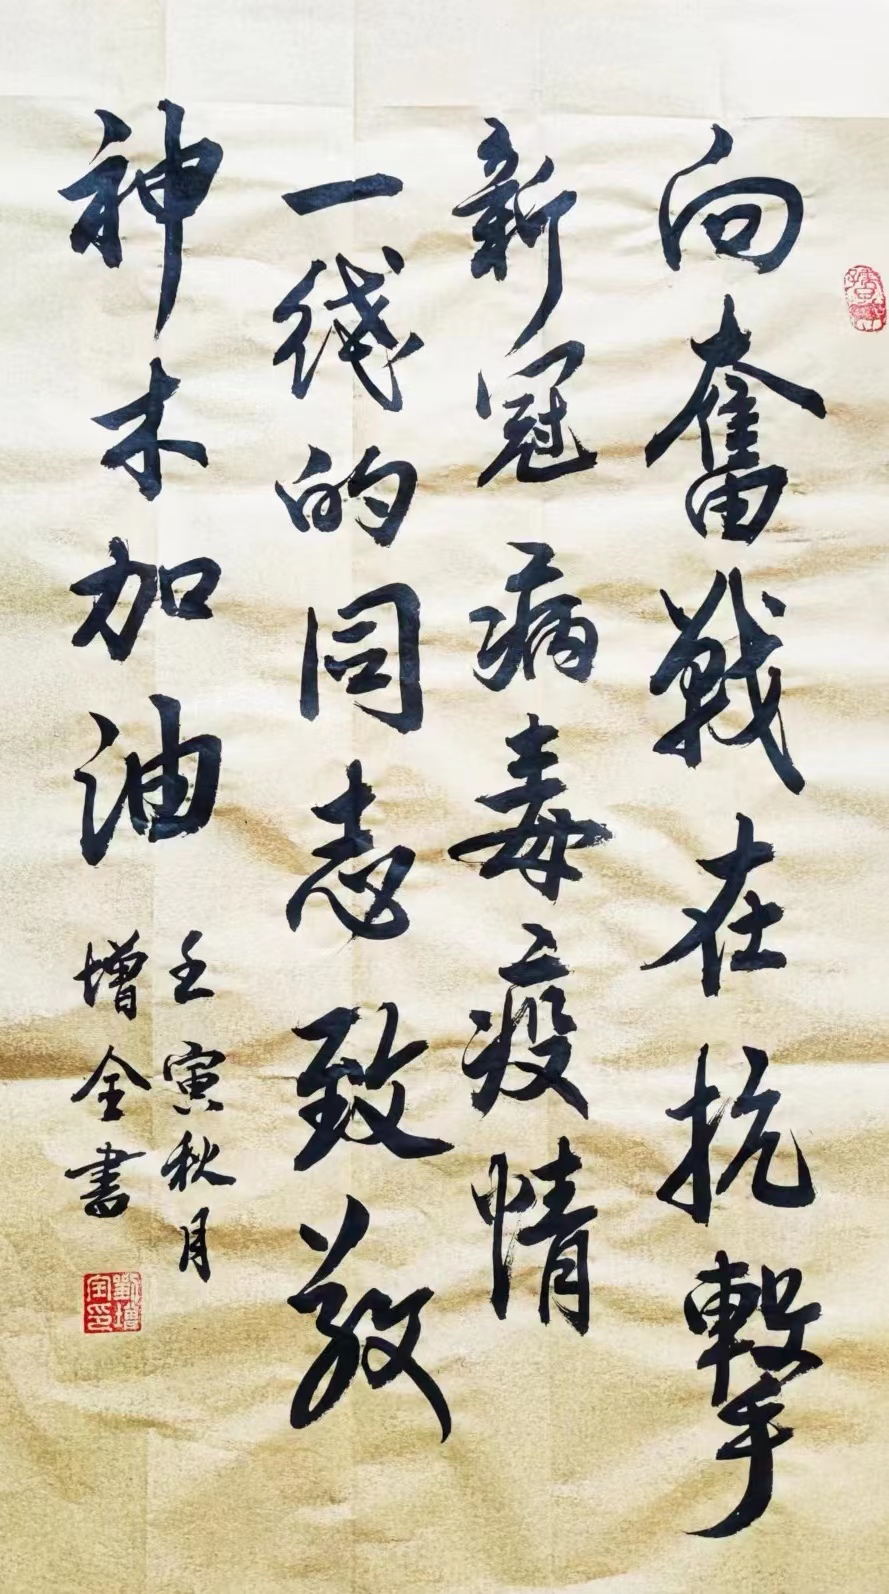 向奮戰在抗擊
新冠病毒疫情
一线的同志致敬
神木加油
壬寅秋月
增全書